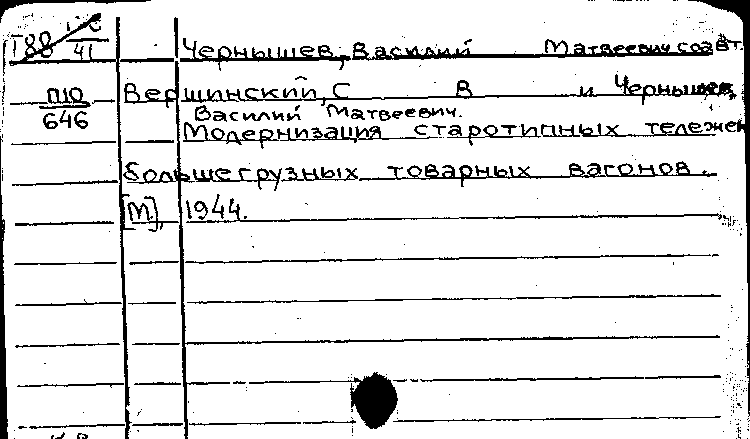 Т88 41 Чернышев, Василий Матвеевич соавт.
П10 Вершинский, С В и Чернышев,
646 Василий Матвеевич.
Модернизация старотипных тележек
большегрузных товарных вагонов.
[М], 1944.